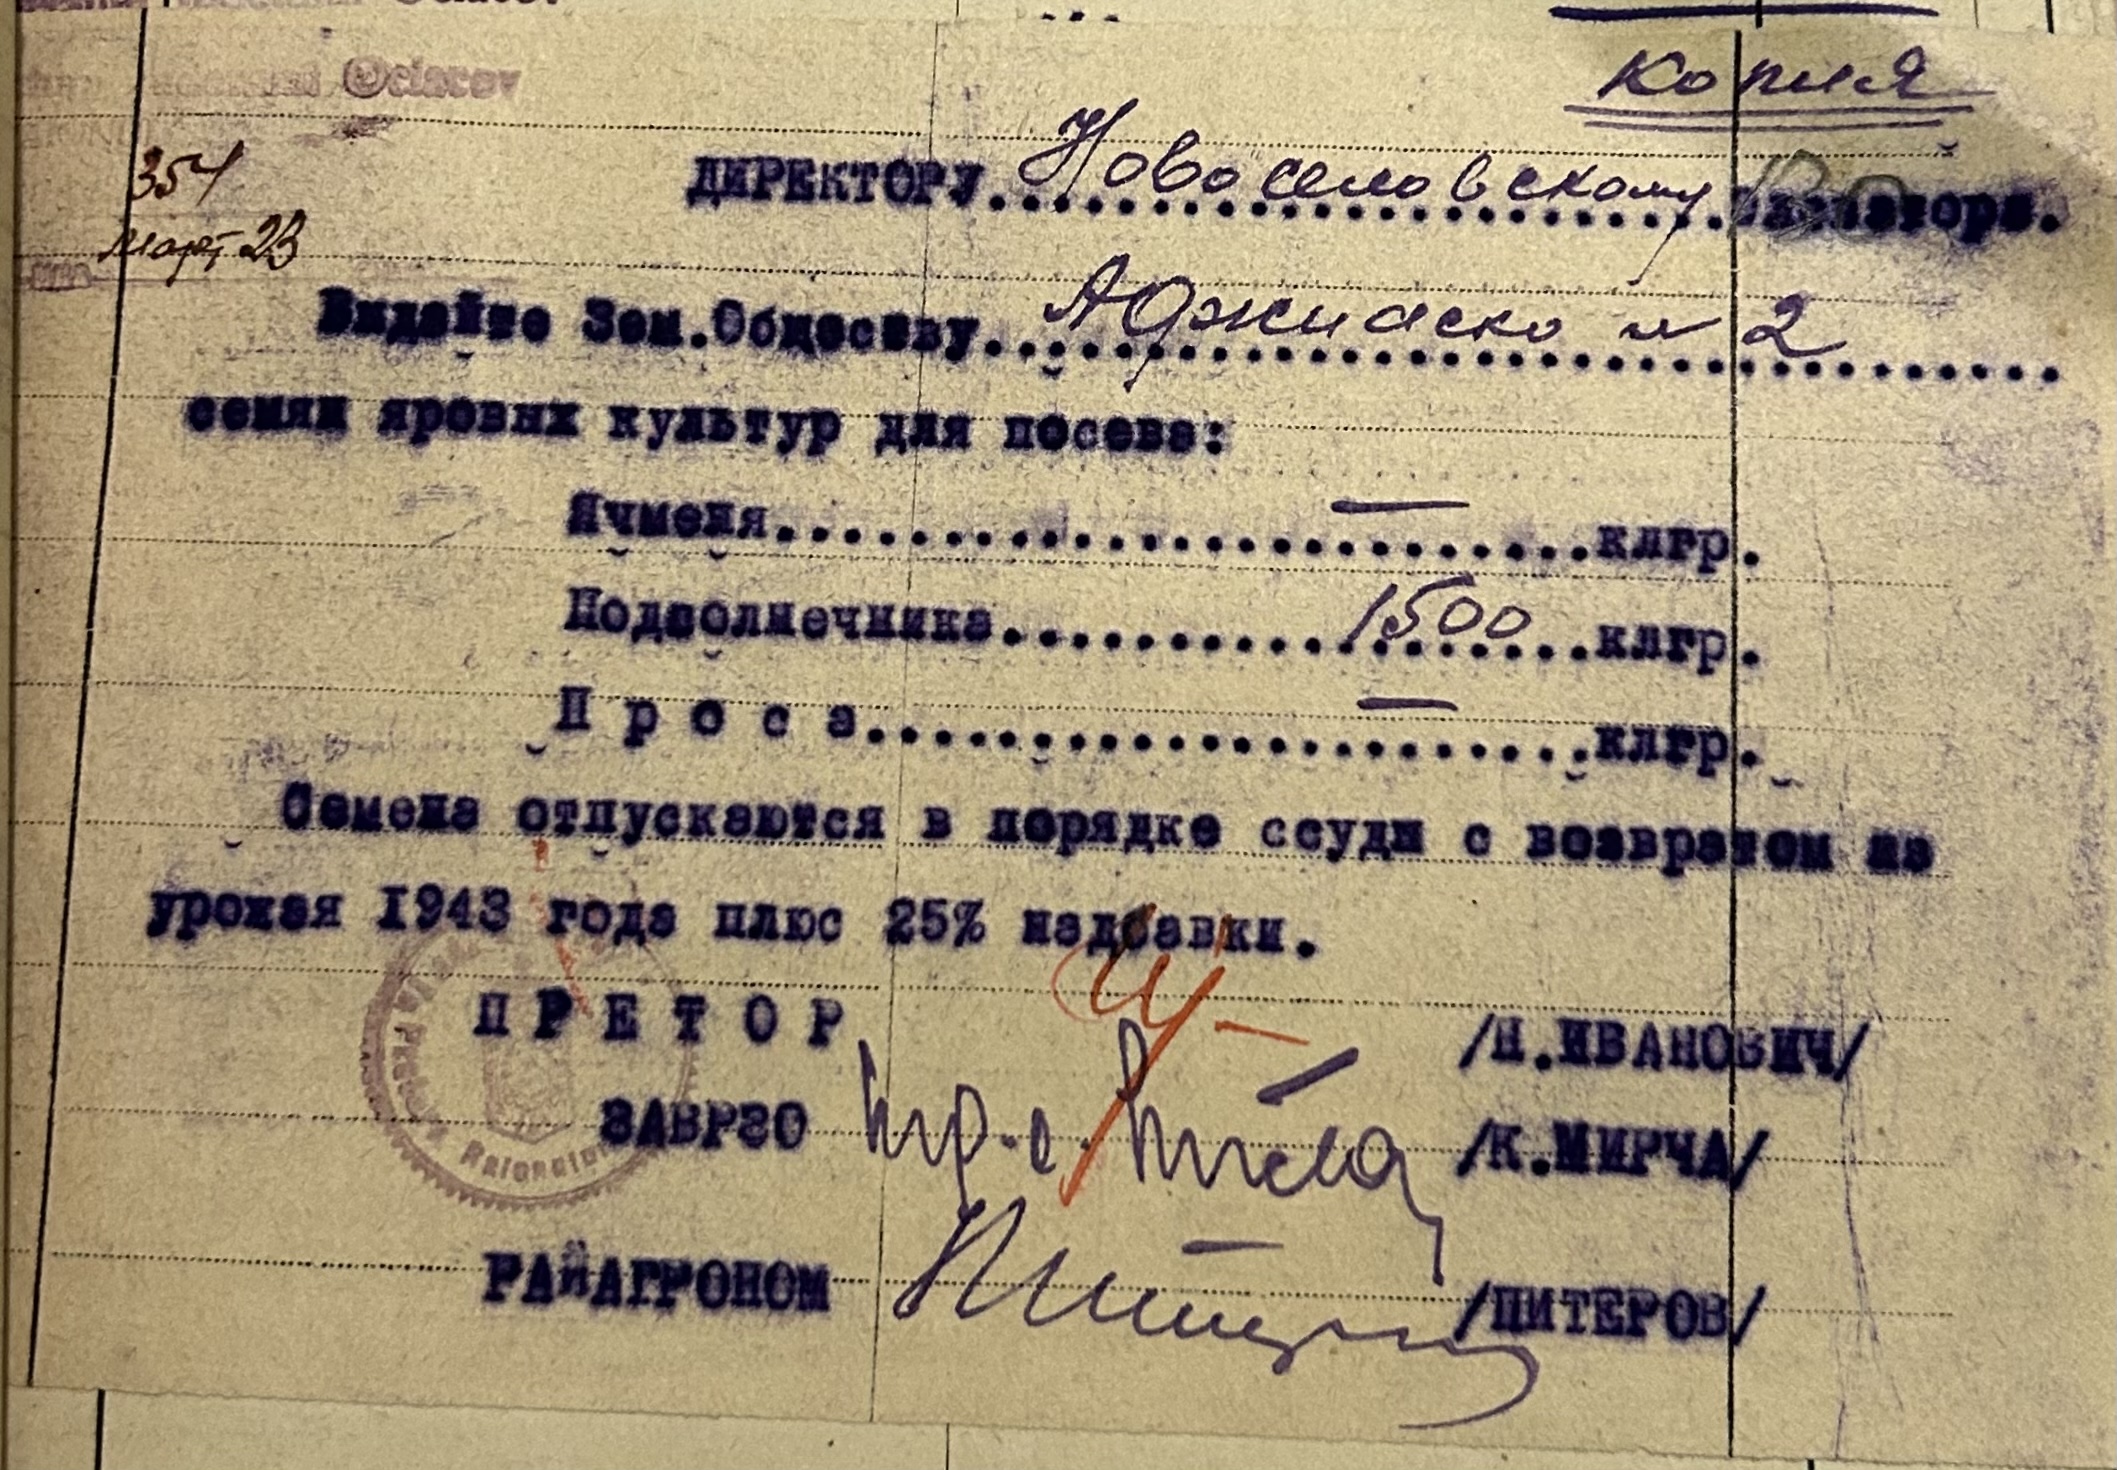 Ociacov
Копия
354
Март 23
ДИРЕКТОРУ Новоселовскому элеватора.
Видайте Зем.Общеседву Аджиаско № 2
семян яровых культур для посева:
Ячменя — клгр.
Подсолнечника 1500 клгр.
П р о с а — клгр.
Семена отпускаются в порядке ссуды с возвратом из
урожая 1943 года плюс 25% надбавки.
П Р Е Т О Р /Н.ИВАНОВИЧ/
ЗАВРЗО /К.МИРЧА/
РАЙАГРОНОМ /ПИТЕРОВ/